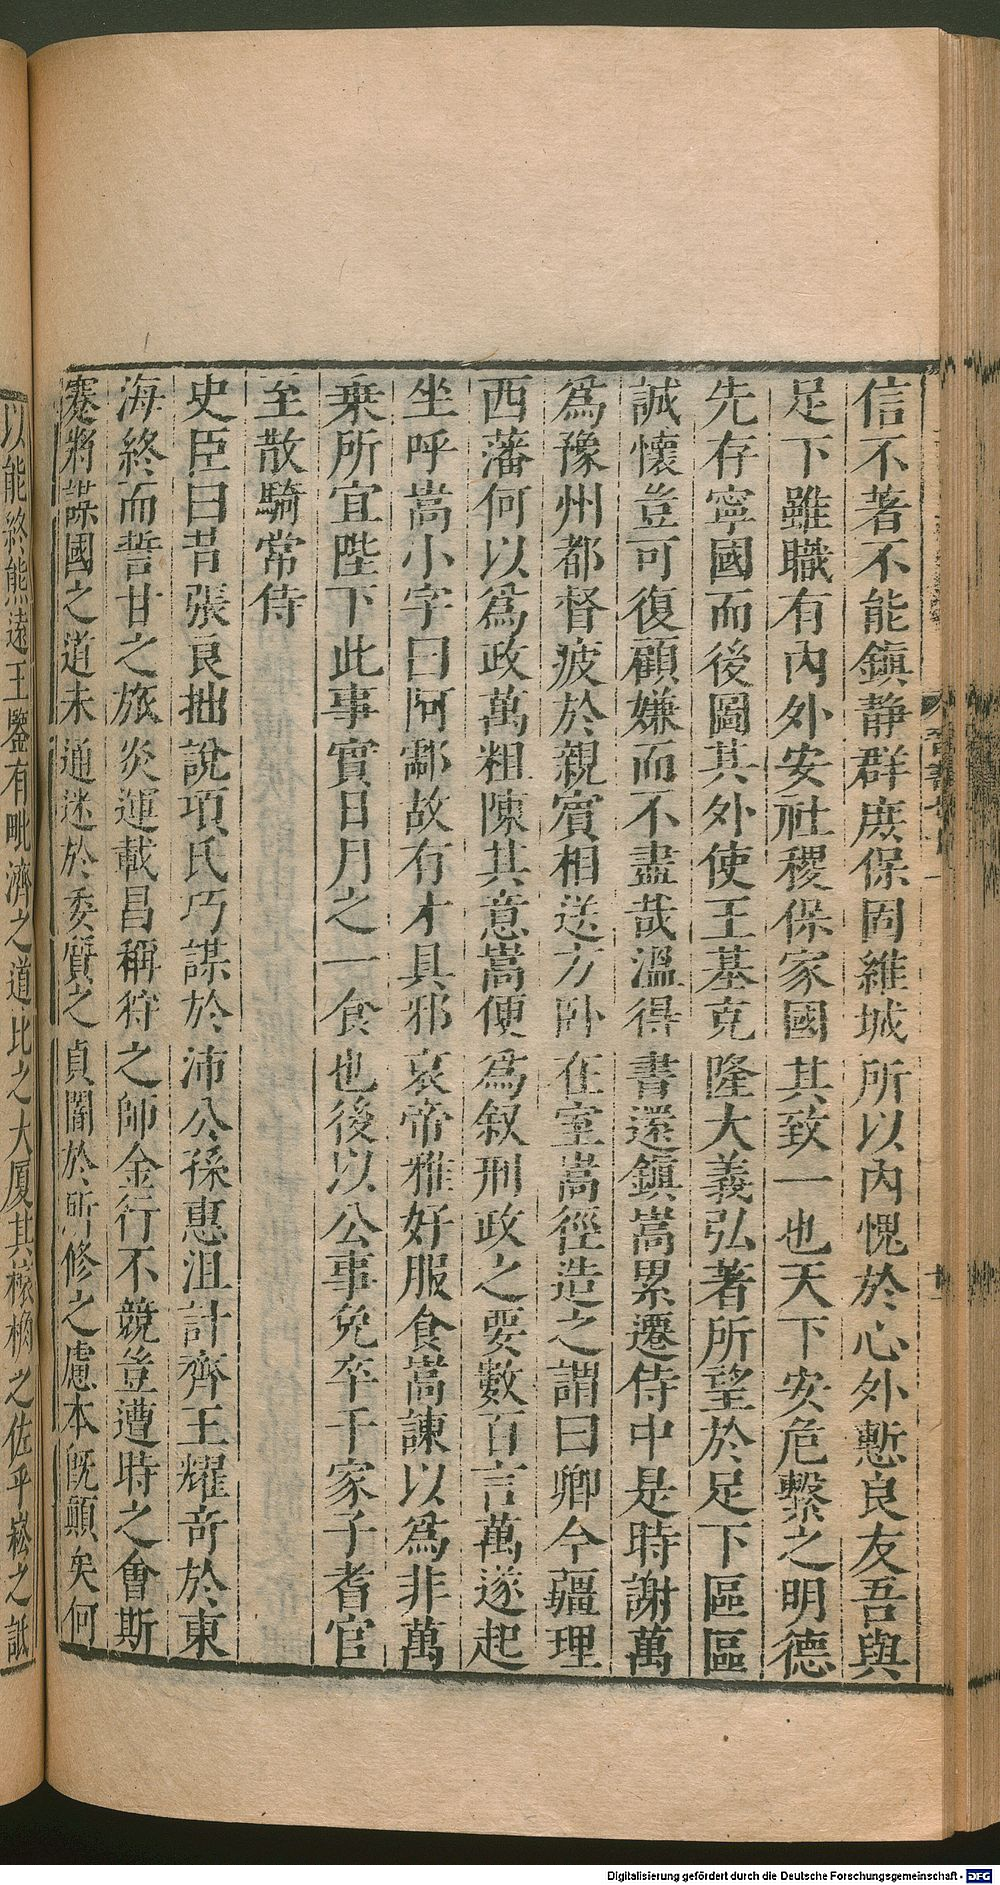 信不著不能鎮靜群庶保固維城所以內愧於心外慙良友吾與
足下雖職有內外安社稷保家國其致一也天下安危繫之明德
先存寧國而後圖其外使王基克隆大義弘著所望於足下區區
誠懷豈可復顧嫌而不盡哉溫得書還鎮嵩累遷侍中是時謝萬
為豫州都督疲於親賓相送方卧在室嵩徑造之謂曰卿今疆理
西藩何以為政萬粗陳其意嵩便為叙刑政之要數百言萬遂起
坐呼嵩小字曰阿酃故有才具邪哀帝雅好服食嵩諫以為非萬
乘所宜陛下此事實日月之一食也後以公事免卒于家子耆官
至散騎常侍
史臣曰昔張良拙說項氏巧謀於沛公孫惠沮計齊王耀奇於東
海終而誓甘之旅炎運載昌稱狩之師金行不競豈遭時之會斯
蹇將謀國之道未通迷於委質之貞闇於所修之慮本旣顚矣何
以能終熊遠王鑒有毗濟之道比之大厦其榱桷之佐乎崧之詆
Digitalisierung gefördert durch die Deutsche Forschungsgemeinschaft - DFG